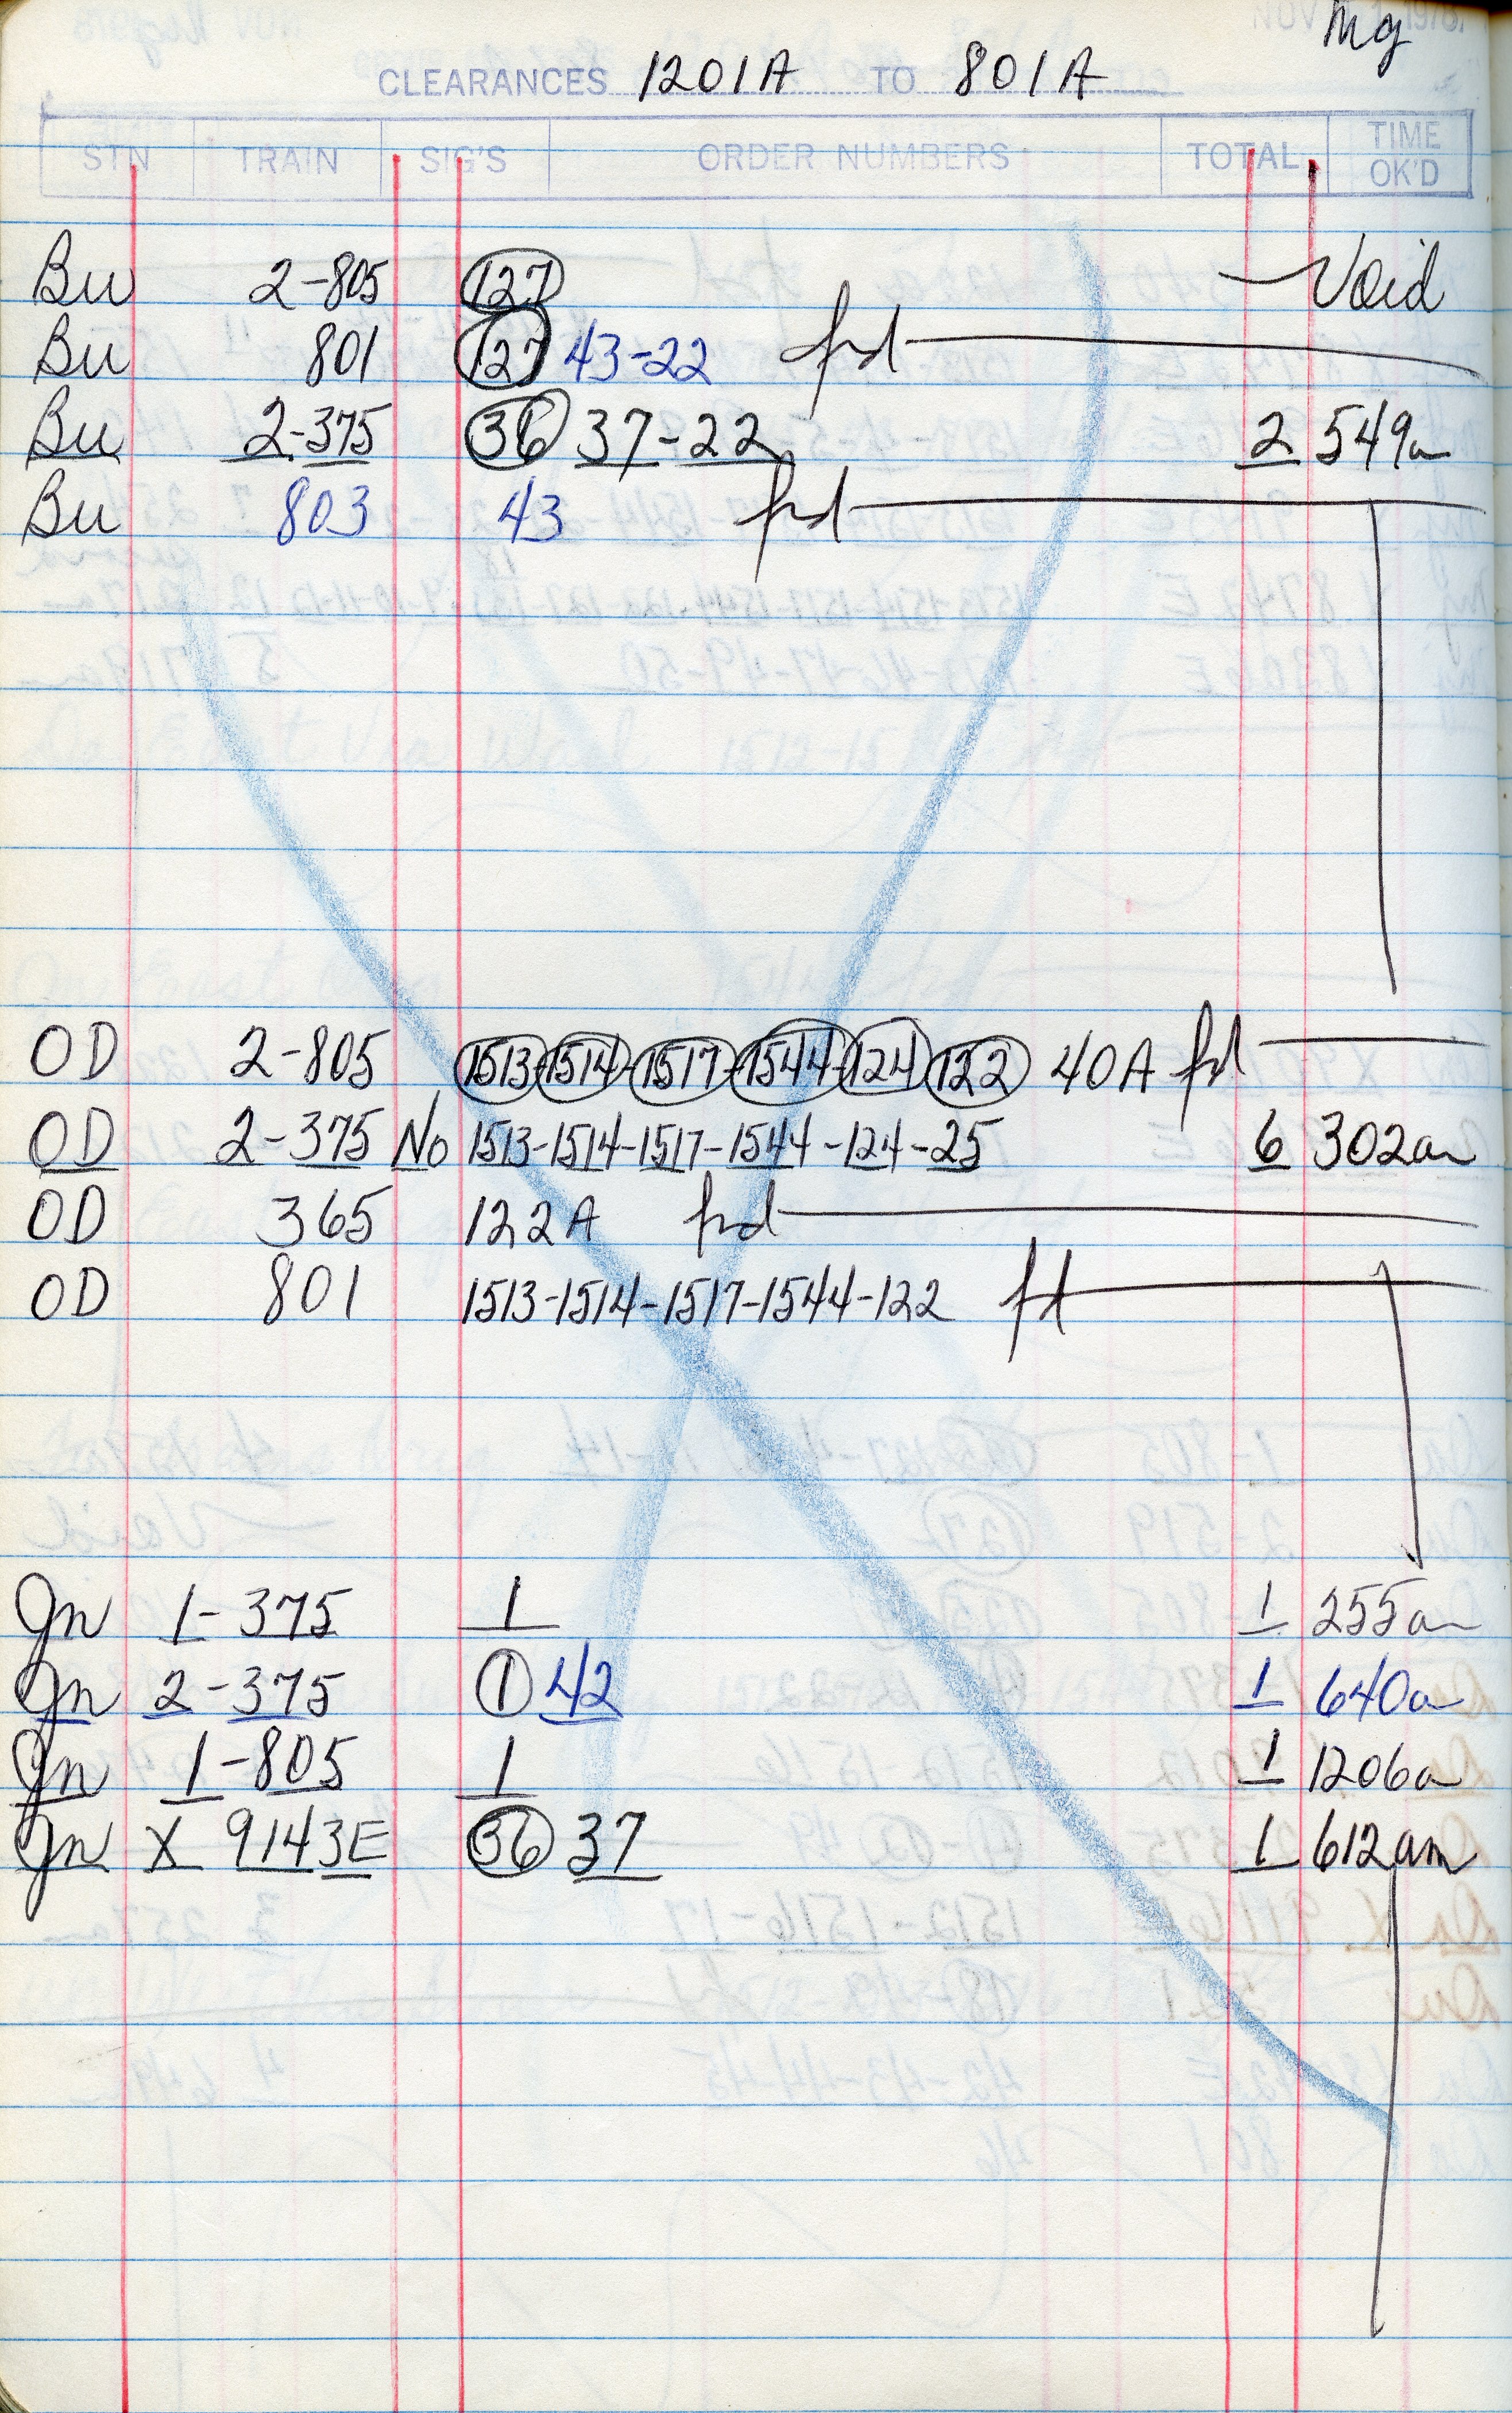 Mg
CLEARANCES 1201A TO 801A
STN TRAIN SIG'S ORDER NUMBERS TOTAL TIME OK'D
Bu 2-805 127 Void
Bu 801 127 43-22 frd
Bu 2-375 36 37-22 2 549a
Bu 803 43 frd
OD 2-805 1513-1514-1517-1544-124-122 40A fd
OD 2-375 No 1513-1514-1517-1544-124-25 6 302am
OD 365 122A frd
OD 801 1513-1514-1517-1544-122 fd
Gn 1-375 1 1 255am
Gn 2-375 1 42 1 640a
Gn 1-805 1 1 1206a
Gn X 9143E 36 37 1 612am